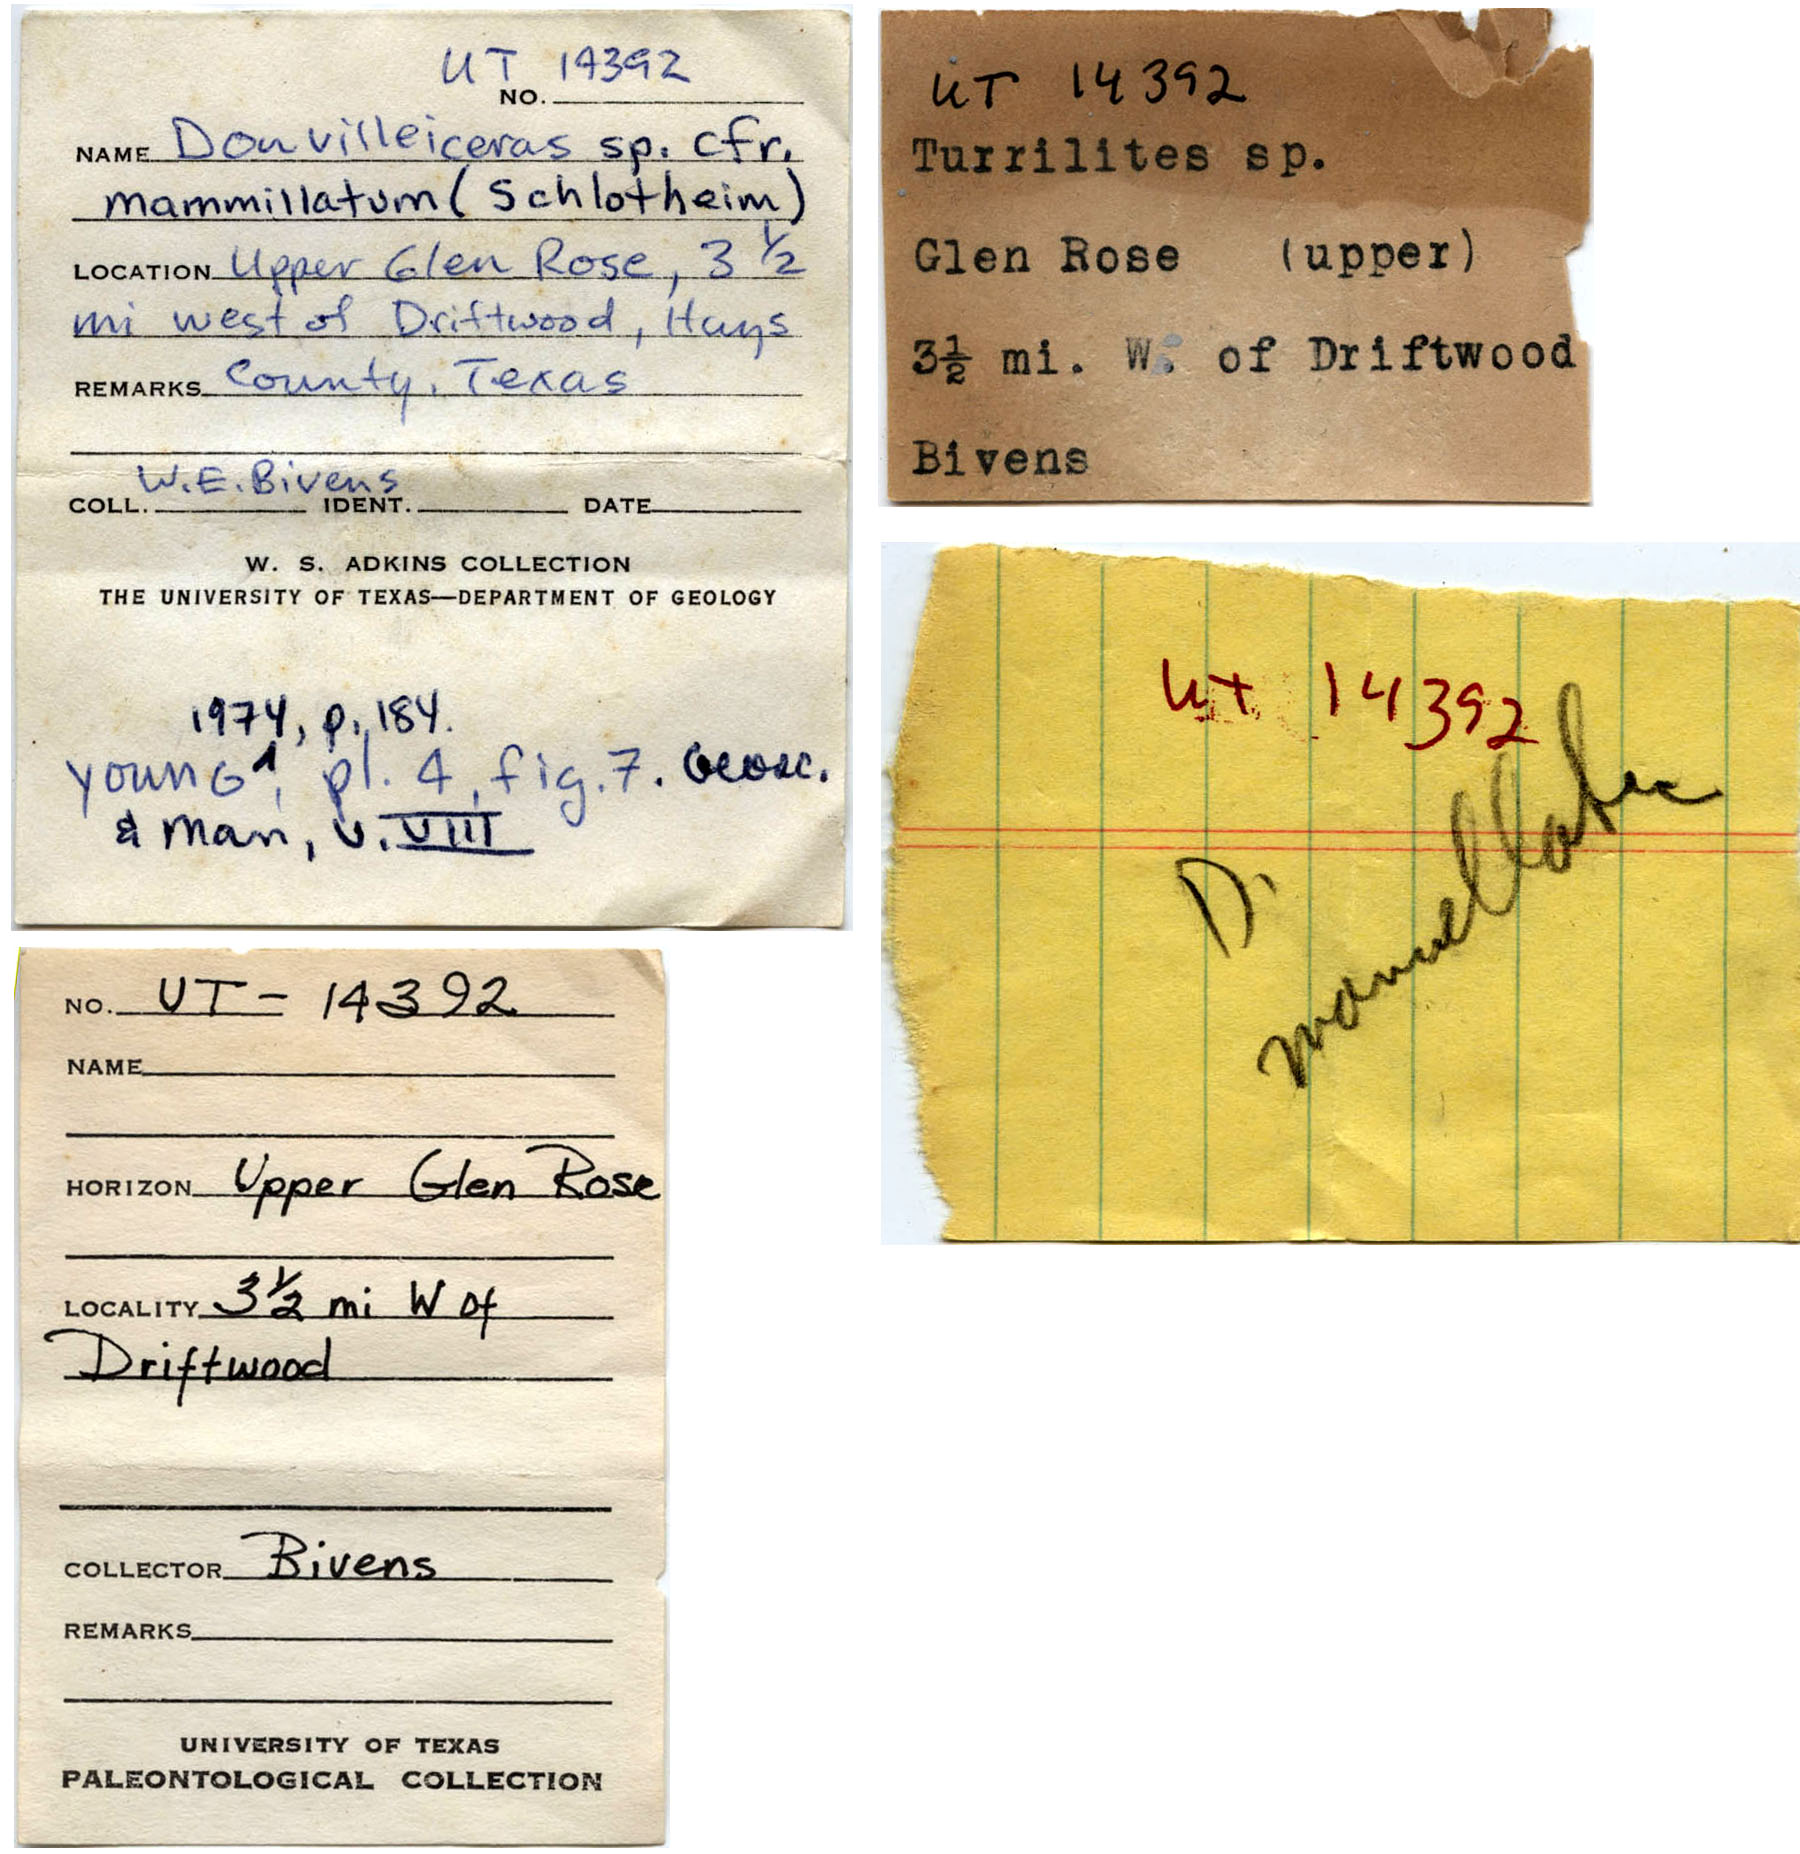 UT 14392
NO.
NAME Douvilleiceras sp. cfr.
mammillatum (Schlotheim)
LOCATION Upper Glen Rose, 3 1/2
mi west of Driftwood, Hays
REMARKS County, Texas
W.E. Bivens
COLL. IDENT. DATE
W. S. ADKINS COLLECTION
THE UNIVERSITY OF TEXAS—DEPARTMENT OF GEOLOGY
1974, p. 184.
YOUNG, pl. 4, fig. 7. Geosc.
& Man, v. VIII
UT 14392
Turrilites sp.
Glen Rose (upper)
3½ mi. W. of Driftwood
Bivens
UT 14392
D.
NO. UT - 14392
NAME
HORIZON Upper Glen Rose
LOCALITY 3 1/2 mi W of
Driftwood
COLLECTOR Bivens
REMARKS
UNIVERSITY OF TEXAS
PALEONTOLOGICAL COLLECTION